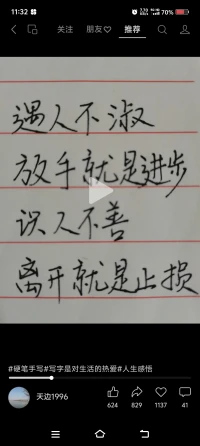 11:32
70%
关注 朋友 推荐
遇人不淑
放手就是进步
识人不善
离开就是止损
#硬笔手写#写字是对生活的热爱#人生感悟
天边1996
624 829 1137 41